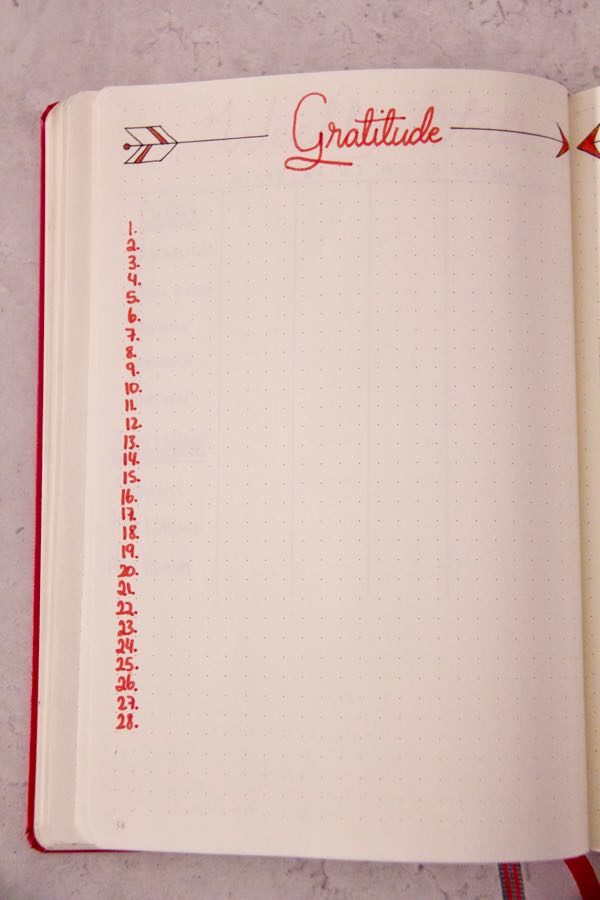 Gratitude
1.
2.
3.
4.
5.
6.
7.
8.
9.
10.
11.
12.
13.
14.
15.
16.
17.
18.
19.
20.
21.
22.
23.
24.
25.
26.
27.
28.